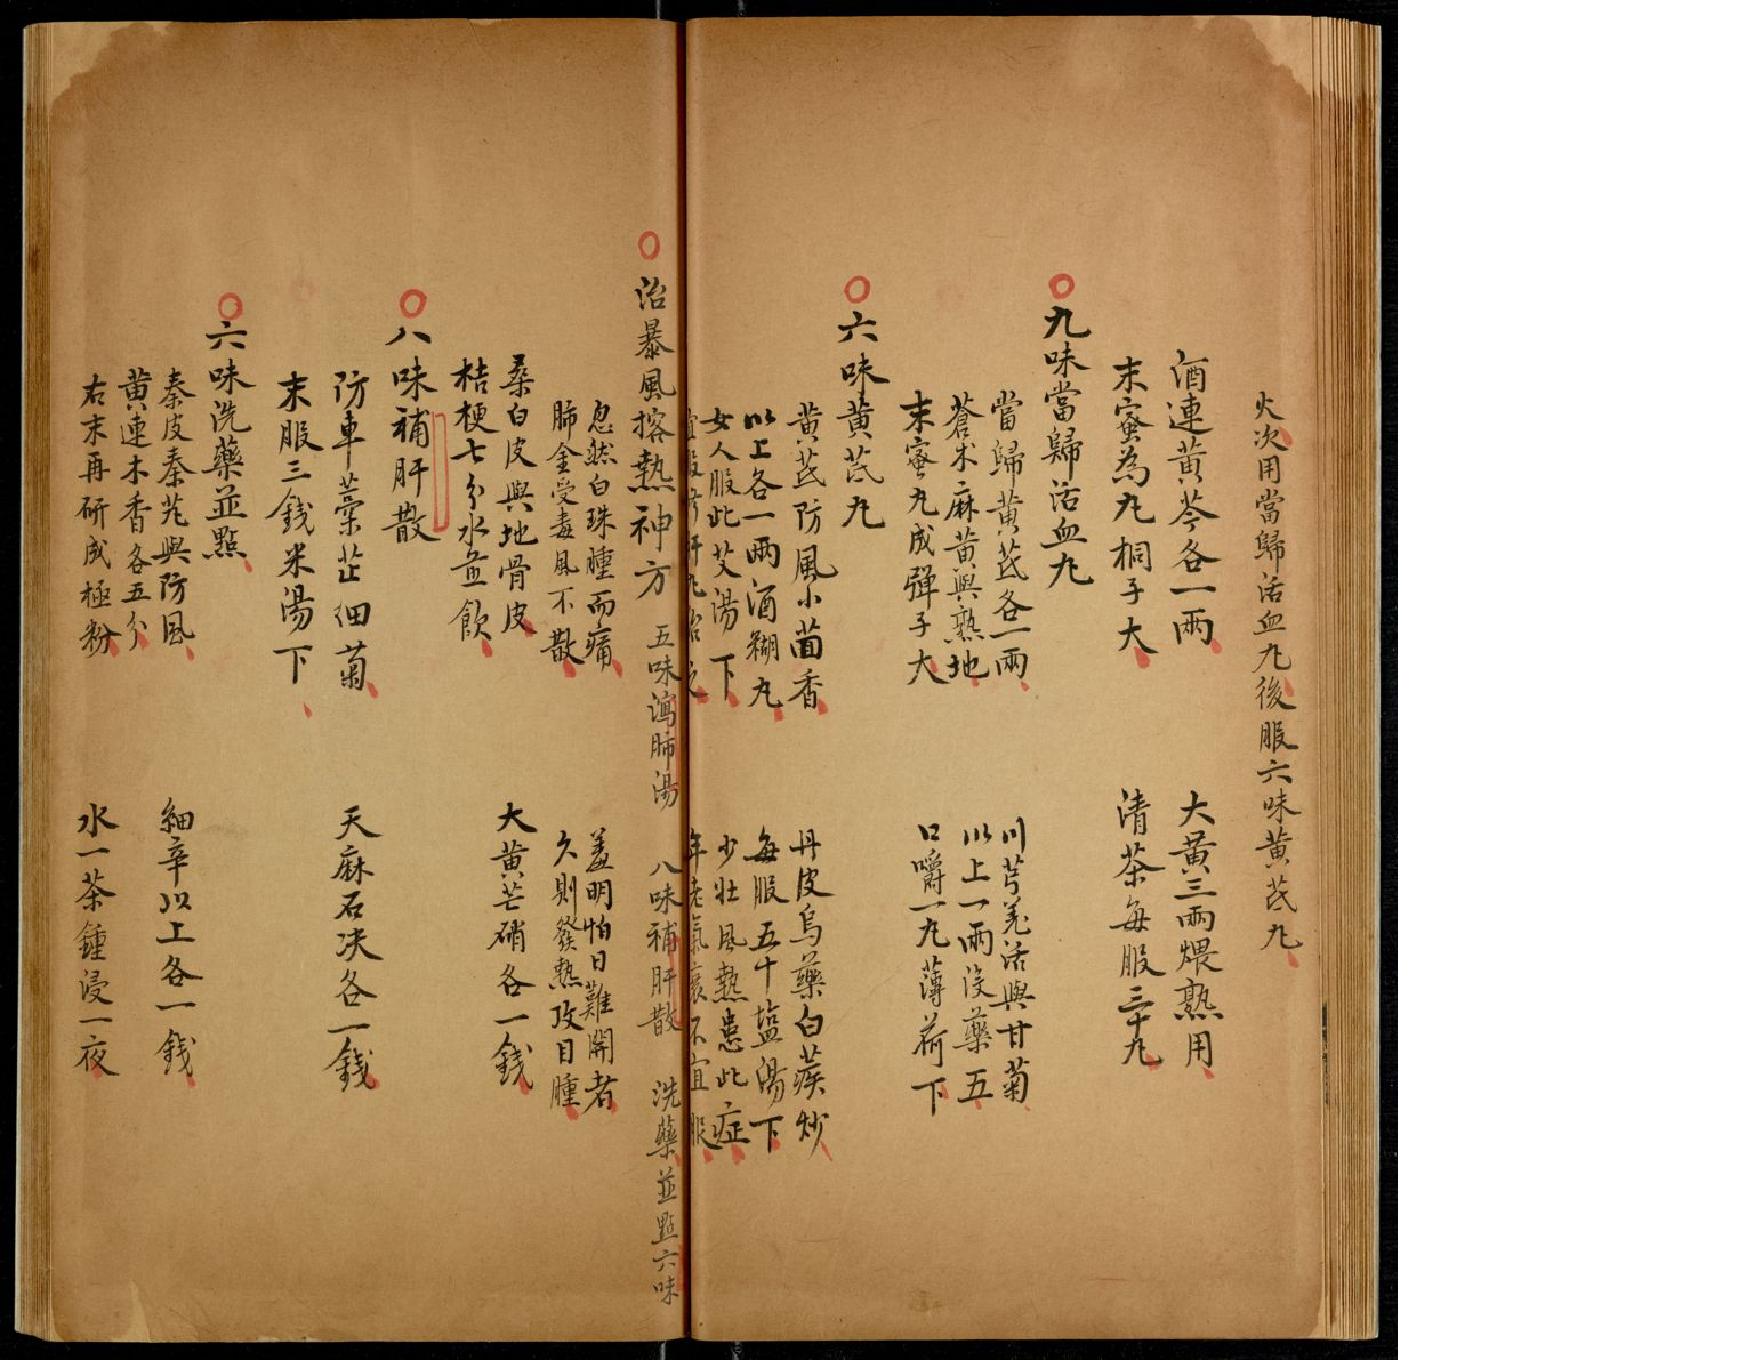 火次用當歸活血九後服六味黄芪九
酒連黄芩各一兩 大黄三兩煨熟用
末蜜為九桐子大 清茶每服三十九
九味當歸活血九
當歸黄芪各一兩 川芎羌活與甘菊
蒼术麻黄與熟地 以上一兩没藥五
末蜜九成彈子大 口嚼一九薄荷下
六味黄芪九
黄芪防風小茴香 丹皮烏藥白蒺炒
以上各一兩酒糊九 每服五十塩湯下
女人服此艾湯下 少壮風熱患此症
年老氣衰不宜服
治暴風揢熱神方 五味瀉肺湯 八味補肝散 洗藥並點六味
忽然白珠腫而痛 羞明怕日難開者
肺金受毒風不散 久則發熱攻目腫
桑白皮與地骨皮 大黄芒硝各一錢
桔梗七分水煎飲
八味補肝散
防車藁芷細菊 天麻石决各一錢
末服三錢米湯下
六味洗藥並點
秦皮秦艽與防風 細辛以上各一錢
黄連木香各五分
右末再研成極粉 水一茶鍾浸一夜